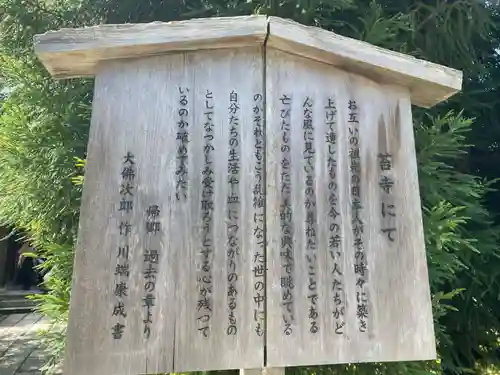 苔寺にて
お互いの祖先の日本人がその時々に築き
上げて遺したものを今の若い人たちがど
んな風に見ているのか尋ねたいことである
亡びたものをただ美的な興味で眺めている
のかそれともこう乱雑になった世の中にも
自分たちの生活や血につながりのあるもの
としてなつかしみ受け取ろうとする心が残って
いるのか確めてみたい
帰郷 過去の章より
大佛次郎作 川端康成書